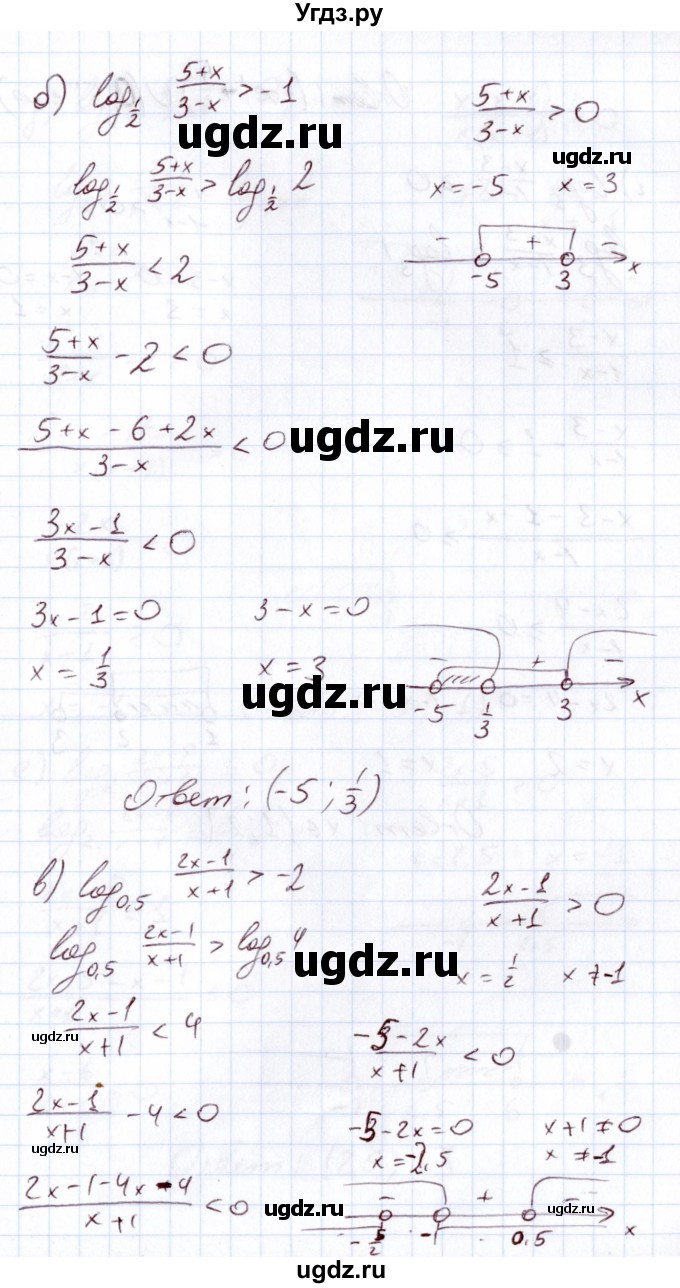 Угдз.ру
б) log_{1/2} (5+x)/(3-x) > -1
(5+x)/(3-x) > 0
ugdz.ru
ugdz.ru
log_{1/2} (5+x)/(3-x) > log_{1/2} 2
x = -5 x = 3
(5+x)/(3-x) < 2
- + -
-5 3 x
(5+x)/(3-x) - 2 < 0
ugdz.ru
(5+x-6+2x)/(3-x) < 0
ugdz.ru
(3x-1)/(3-x) < 0
3x-1=0 3-x=0
x = 1/3 x = 3
ugdz.ru
- + -
-5 1/3 3 x
Ответ: (-5; 1/3)
в) log_{0,5} (2x-1)/(x+1) > -2
(2x-1)/(x+1) > 0
log_{0,5} (2x-1)/(x+1) > log_{0,5} 4
ugdz.ru
x = 1/2 x ≠ -1
(2x-1)/(x+1) < 4
ugdz.ru
(-5-2x)/(x+1) < 0
(2x-1)/(x+1) - 4 < 0
-5-2x=0 x+1≠0
ugdz.ru
x=-2,5 x ≠ -1
(2x-1-4x-4)/(x+1) < 0
- + -
ugdz.ru
-5/2 -1 0,5 x
ugdz.ru
ugdz.ru